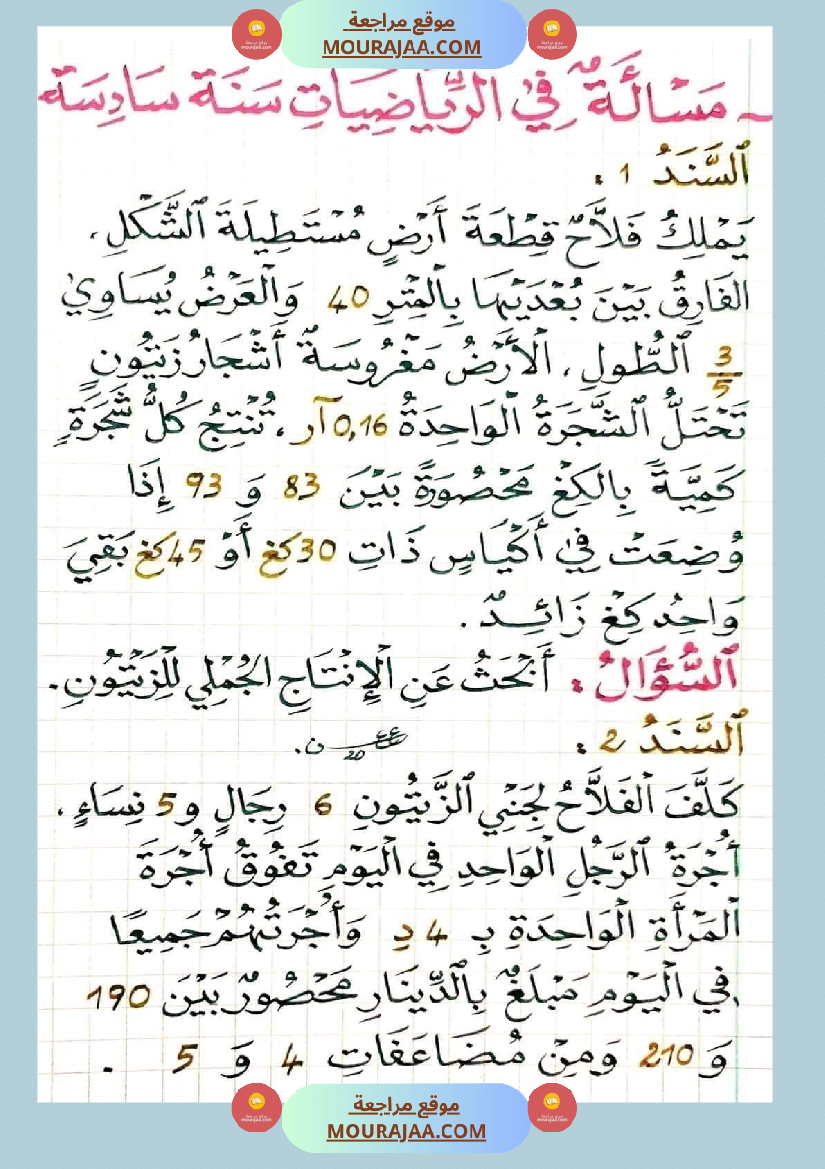 موقع مراجعة
MOURAJAA.COM
مَسْأَلَةٌ فِي الرِّيَاضِيَاتِ سَنَة سَادِسَة
اَلسَّنَدُ 1 :
يَمْلِكُ فَلاَّحٌ قِطْعَةَ أَرْضٍ مُسْتَطِيلَةَ اَلشَّكْلِ،
الفَارِقُ بَيْنَ بُعْدَيْهَا بِالْمِتْرِ 40 وَالْعَرْضُ يُسَاوِي
3/5 اَلطُّولِ، اَلْأَرْضُ مَغْرُوسَةٌ أَشْجَارُ زَيْتُونٍ
تَحْتَلُّ اَلشَّجَرَةُ اَلْوَاحِدَةُ 0,16 آر، تُنْتِجُ كُلُّ شَجَرَةٍ
كَمِّيَّةً بِالكِغ مَحْصُورَةً بَيْنَ 83 وَ 93 إِذَا
وُضِعَتْ فِي أَكْيَاسٍ ذَاتِ 30كغ أَوْ 45كغ بَقِيَ
وَاحِد كِغ زَائِدٌ.
اَلسُّؤَالُ : أَبْحَثُ عَنِ اَلْإِنْتَاجِ الجُمْلِي لِلزَّيْتُونِ.
اَلسَّنَدُ 2 :
كَلَّفَ اَلْفَلاَّحُ لِجَنْيِ اَلزَّيْتُونِ 6 رِجَالٍ و5 نِسَاءٍ،
أُجْرَةُ اَلرَّجُلِ اَلْوَاحِدِ فِي اَلْيَوْمِ تَفُوقُ أُجْرَةَ
اَلْمَرْأَةِ اَلْوَاحِدَةِ بِـ 4 دِ وَأُجْرَتُهُمْ جَمِيعًا
فِي اَلْيَوْمِ مَبْلَغٌ بِالدِّينَارِ مَحْصُورٌ بَيْنَ 190
وَ 210 وَمِنْ مُضَاعَفَاتِ 4 وَ 5 .
موقع مراجعة
MOURAJAA.COM